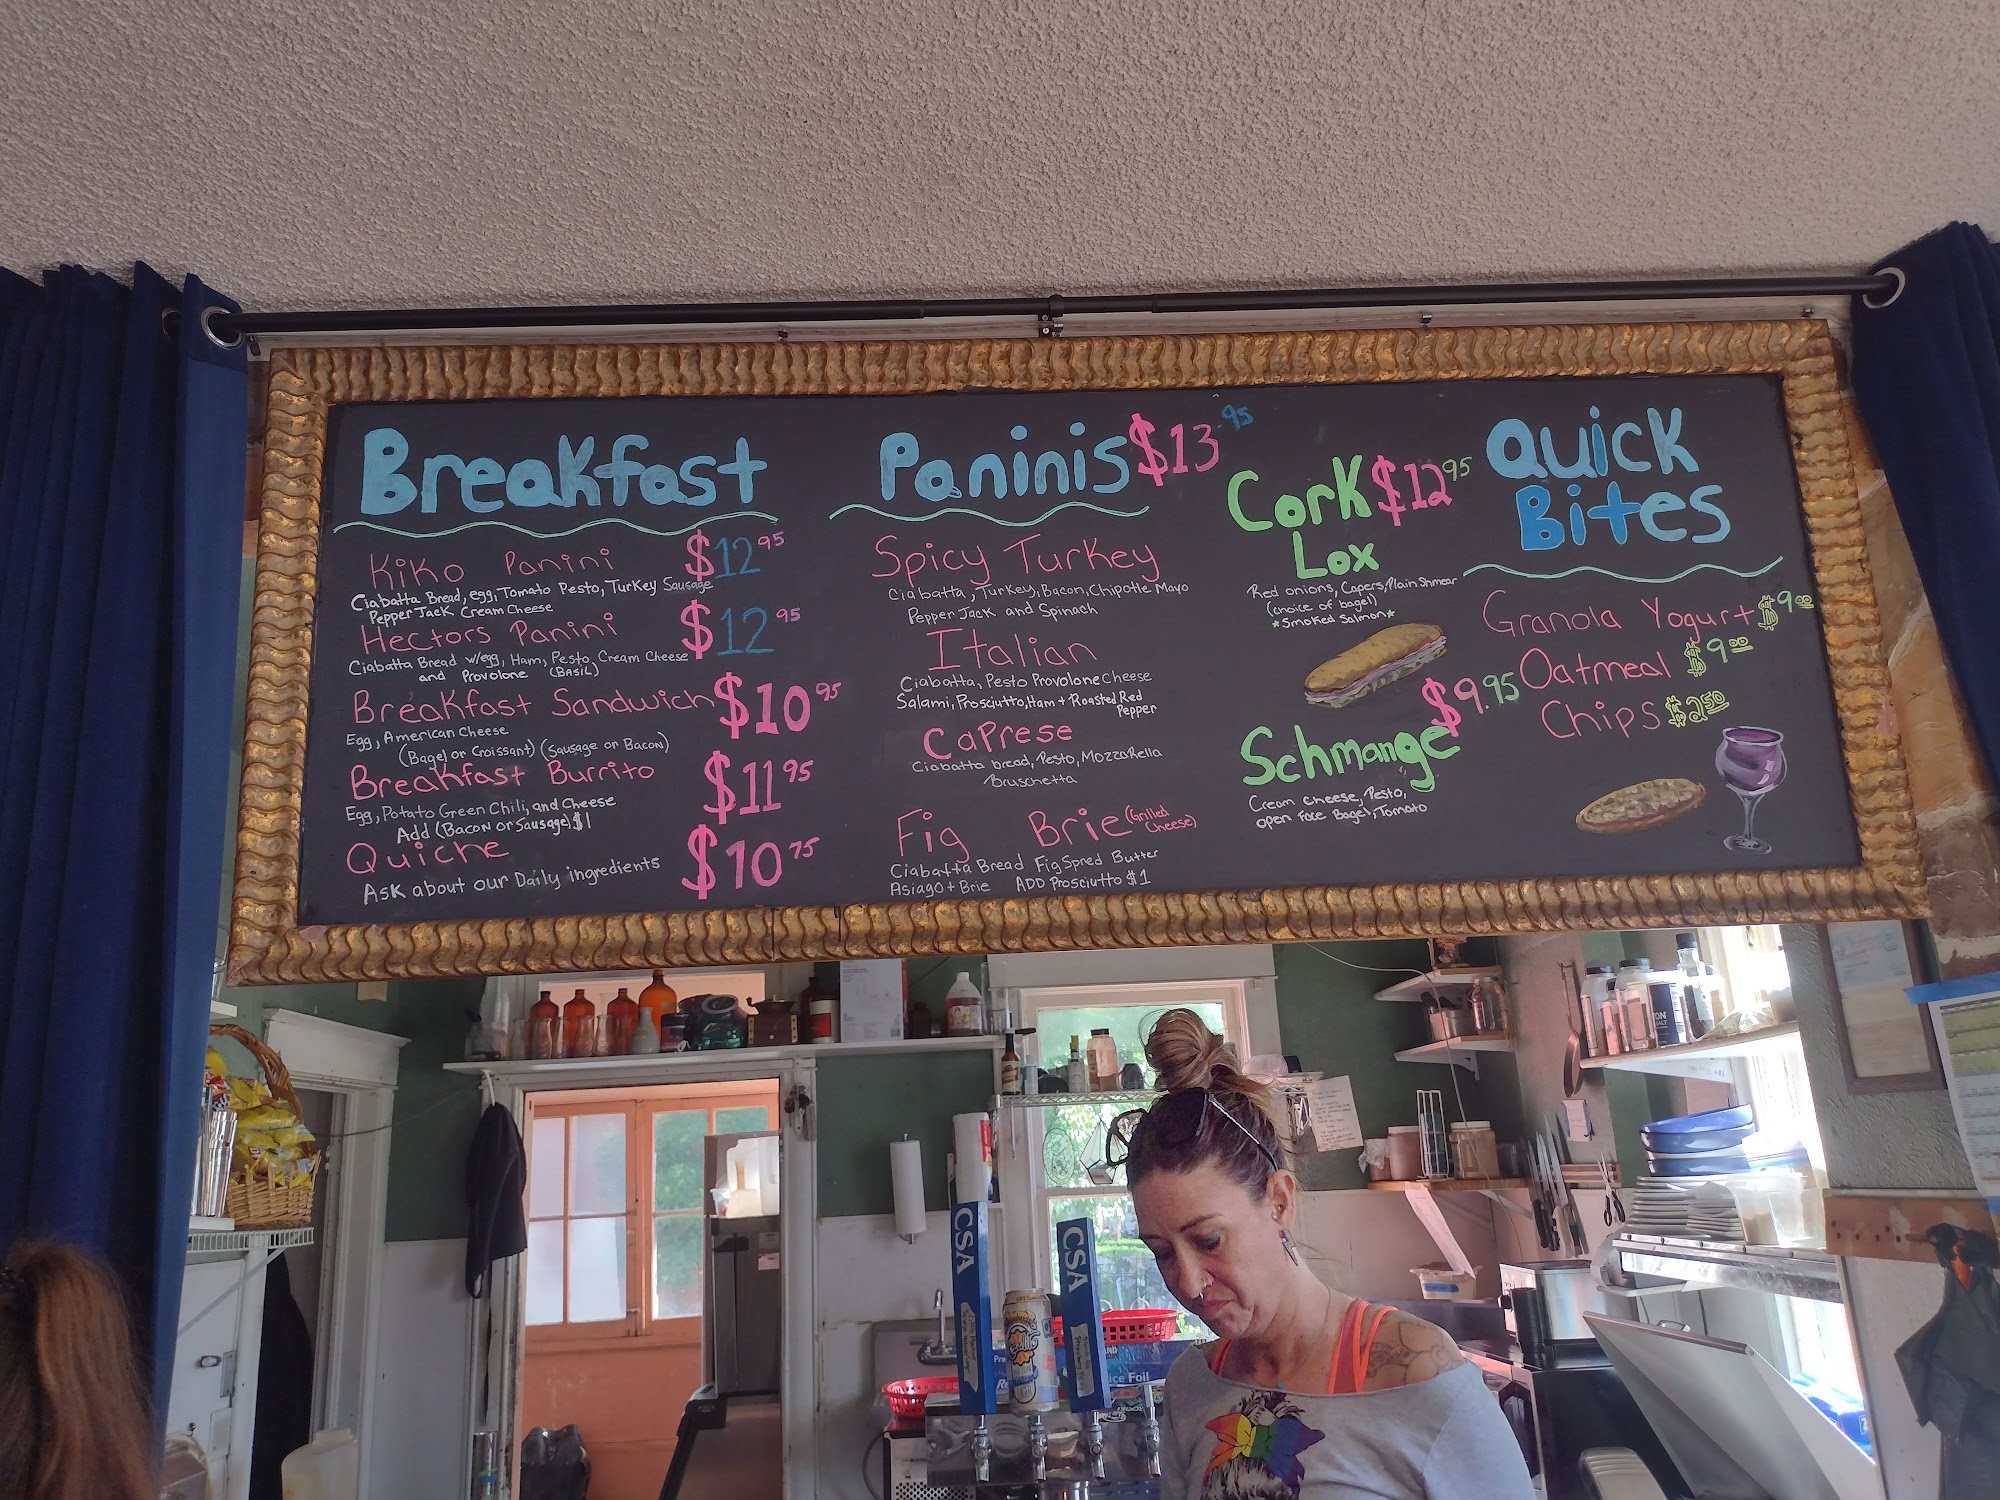 Breakfast
Kiko Panini $12 95
Ciabatta Bread, egg, Tomato Pesto, Turkey Sausage
Pepper Jack Cream Cheese
Hectors Panini $12 95
Ciabatta Bread w/egg, Ham, Pesto, Cream Cheese
and Provolone (BASIL)
Breakfast Sandwich $10 95
Egg, American Cheese
(Bagel or Croissant) (Sausage or Bacon)
Breakfast Burrito $11 95
Egg, Potato Green Chili, and Cheese
Add (Bacon or Sausage) $1
Quiche $10 75
Ask about our Daily ingredients
Paninis $13.95
Spicy Turkey
Ciabatta, Turkey, Bacon, Chipotle Mayo
Pepper Jack and Spinach
Italian
Ciabatta, Pesto Provolone Cheese
Salami, Prosciutto, Ham + Roasted Red
Pepper
Caprese
Ciabatta bread, Pesto, Mozzarella
Bruschetta
Fig Brie (Grilled
Cheese)
Ciabatta Bread Fig Spred Butter
Asiago + Brie ADD Prosciutto $1
Cork $12 95
Lox
Red onions, Capers, Plain Shmear
(choice of bagel)
*Smoked Salmon*
Schmange $9.95
Cream cheese, Pesto,
open Face Bagel, Tomato
Quick
Bites
Granola Yogurt $9 00
Oatmeal $9 00
Chips $2 50
CSA
CSA